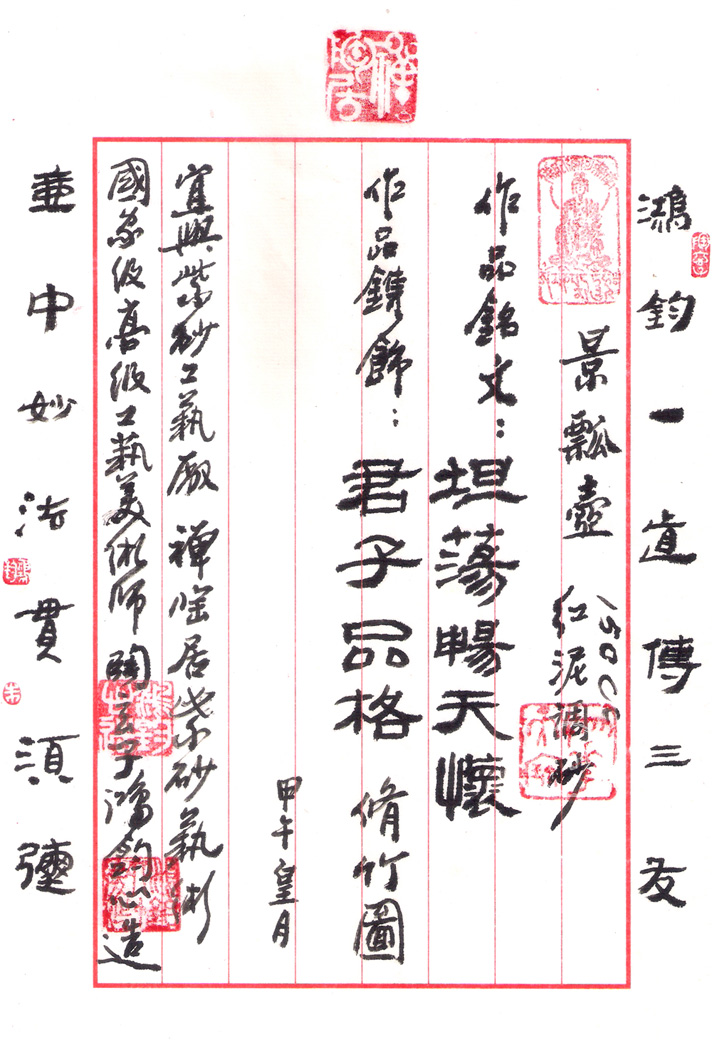 鴻鈞一道傳三友
景瓢壺 紅泥調砂
150cc
作品銘文：坦蕩暢天懷
作品鐫飾：君子品格 脩竹圖
甲午皇月
宜興紫砂工藝廠 禪陶居紫砂藝術
國家级高级工藝美術师 陶玄子鴻鈞心造
壷中妙法貫須彌
禪陶居